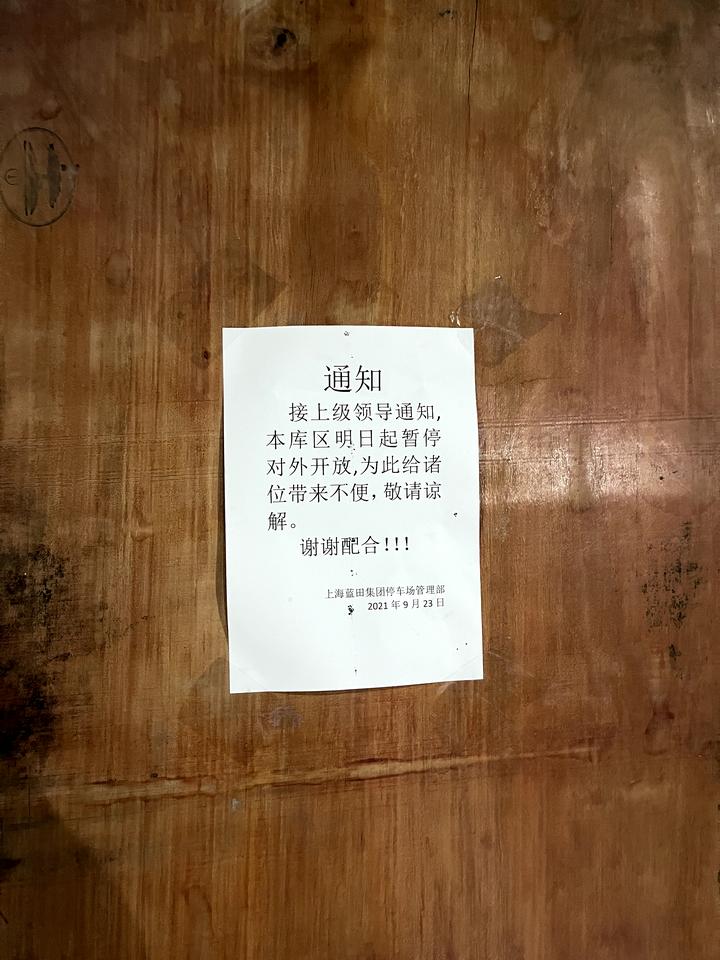 通知
接上级领导通知,
本库区明日起暂停
对外开放,为此给诸
位带来不便，敬请谅
解。
谢谢配合!!!
上海蓝田集团停车场管理部
2021年9月23日